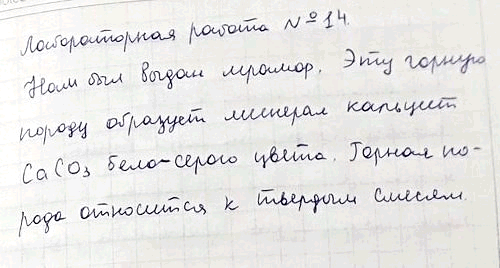 Лабораторная работа №14.
Нам был выдан мрамор. Эту горную
породу образует минерал кальцит
CaCO3 бело-серого цвета. Горная по-
рода относится к твердым смесям.